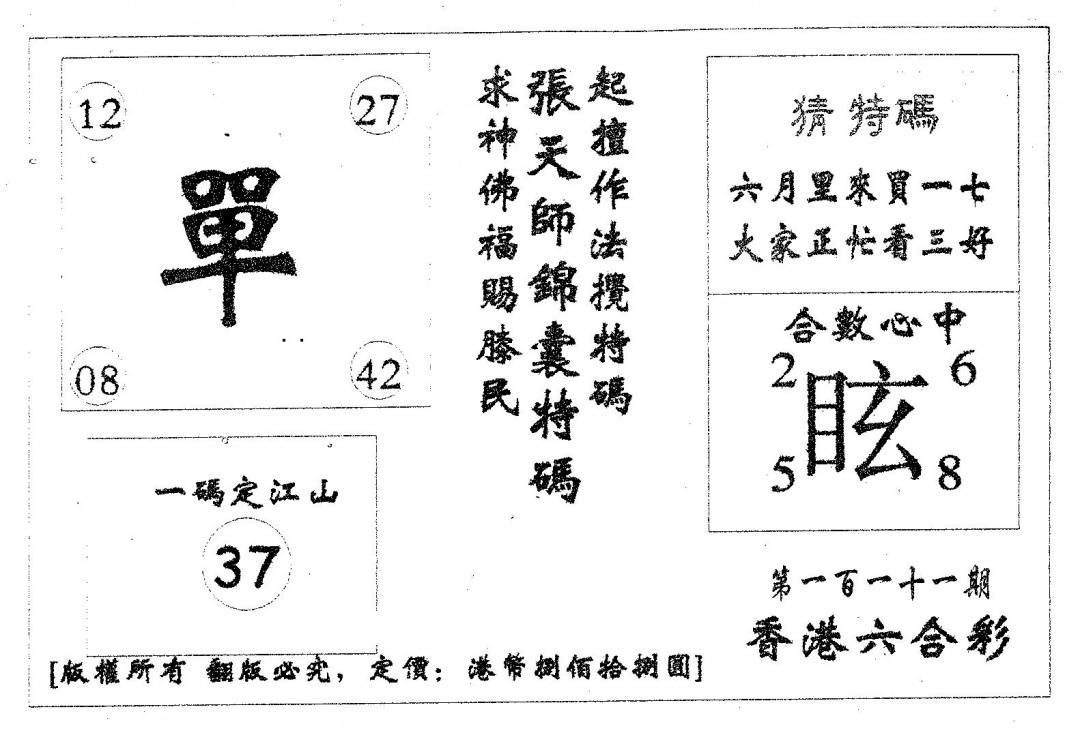 12 27
單
08 42
一碼定江山
37
起擅作法攪特碼
張天師錦囊特碼
求神佛福賜滕民
猜特碼
六月里來買一七
大家正忙看三好
合數心中
2 6
眩
5 8
第一百一十一期
香港六合彩
[版權所有 翻版必究, 定價: 港幣捌佰拾捌圓]